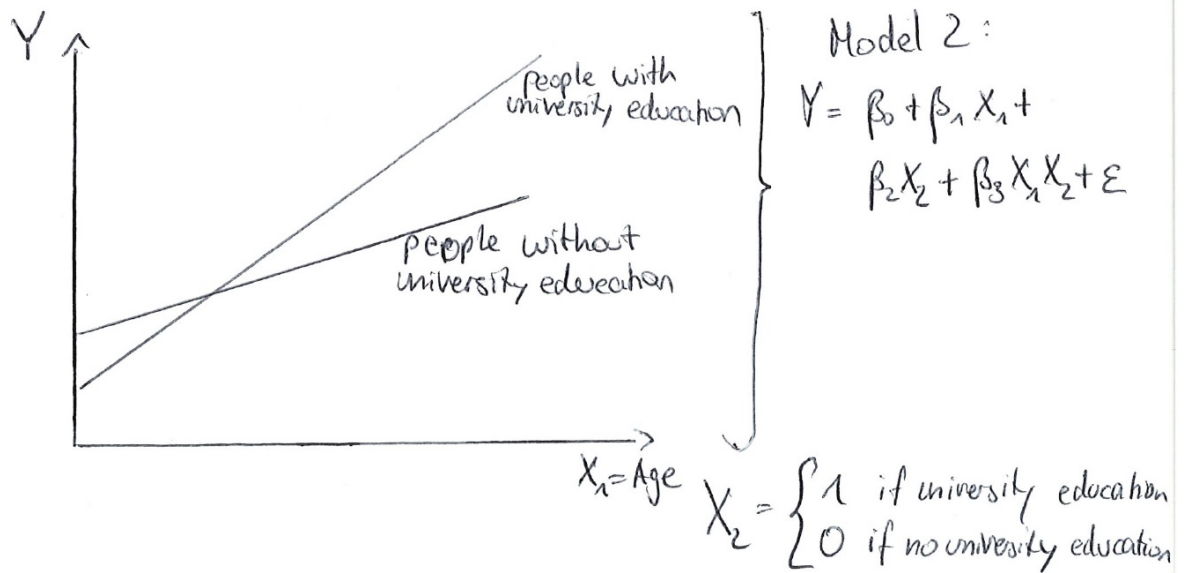 Y
people with
university education
people without
university education
X₁=Age
Model 2:
Y = β₀ + β₁ X₁ +
β₂X₂ + β₃ X₁X₂ + ε
X₂ = { 1 if university education
0 if no university education